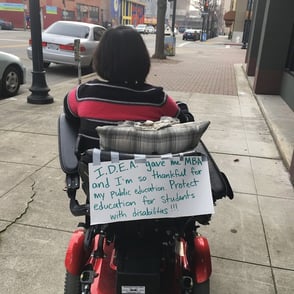 I.D.E.A. gave me "MBA"
and I'm so thankful for
my public education. Protect
education for students
with disabilities!!!